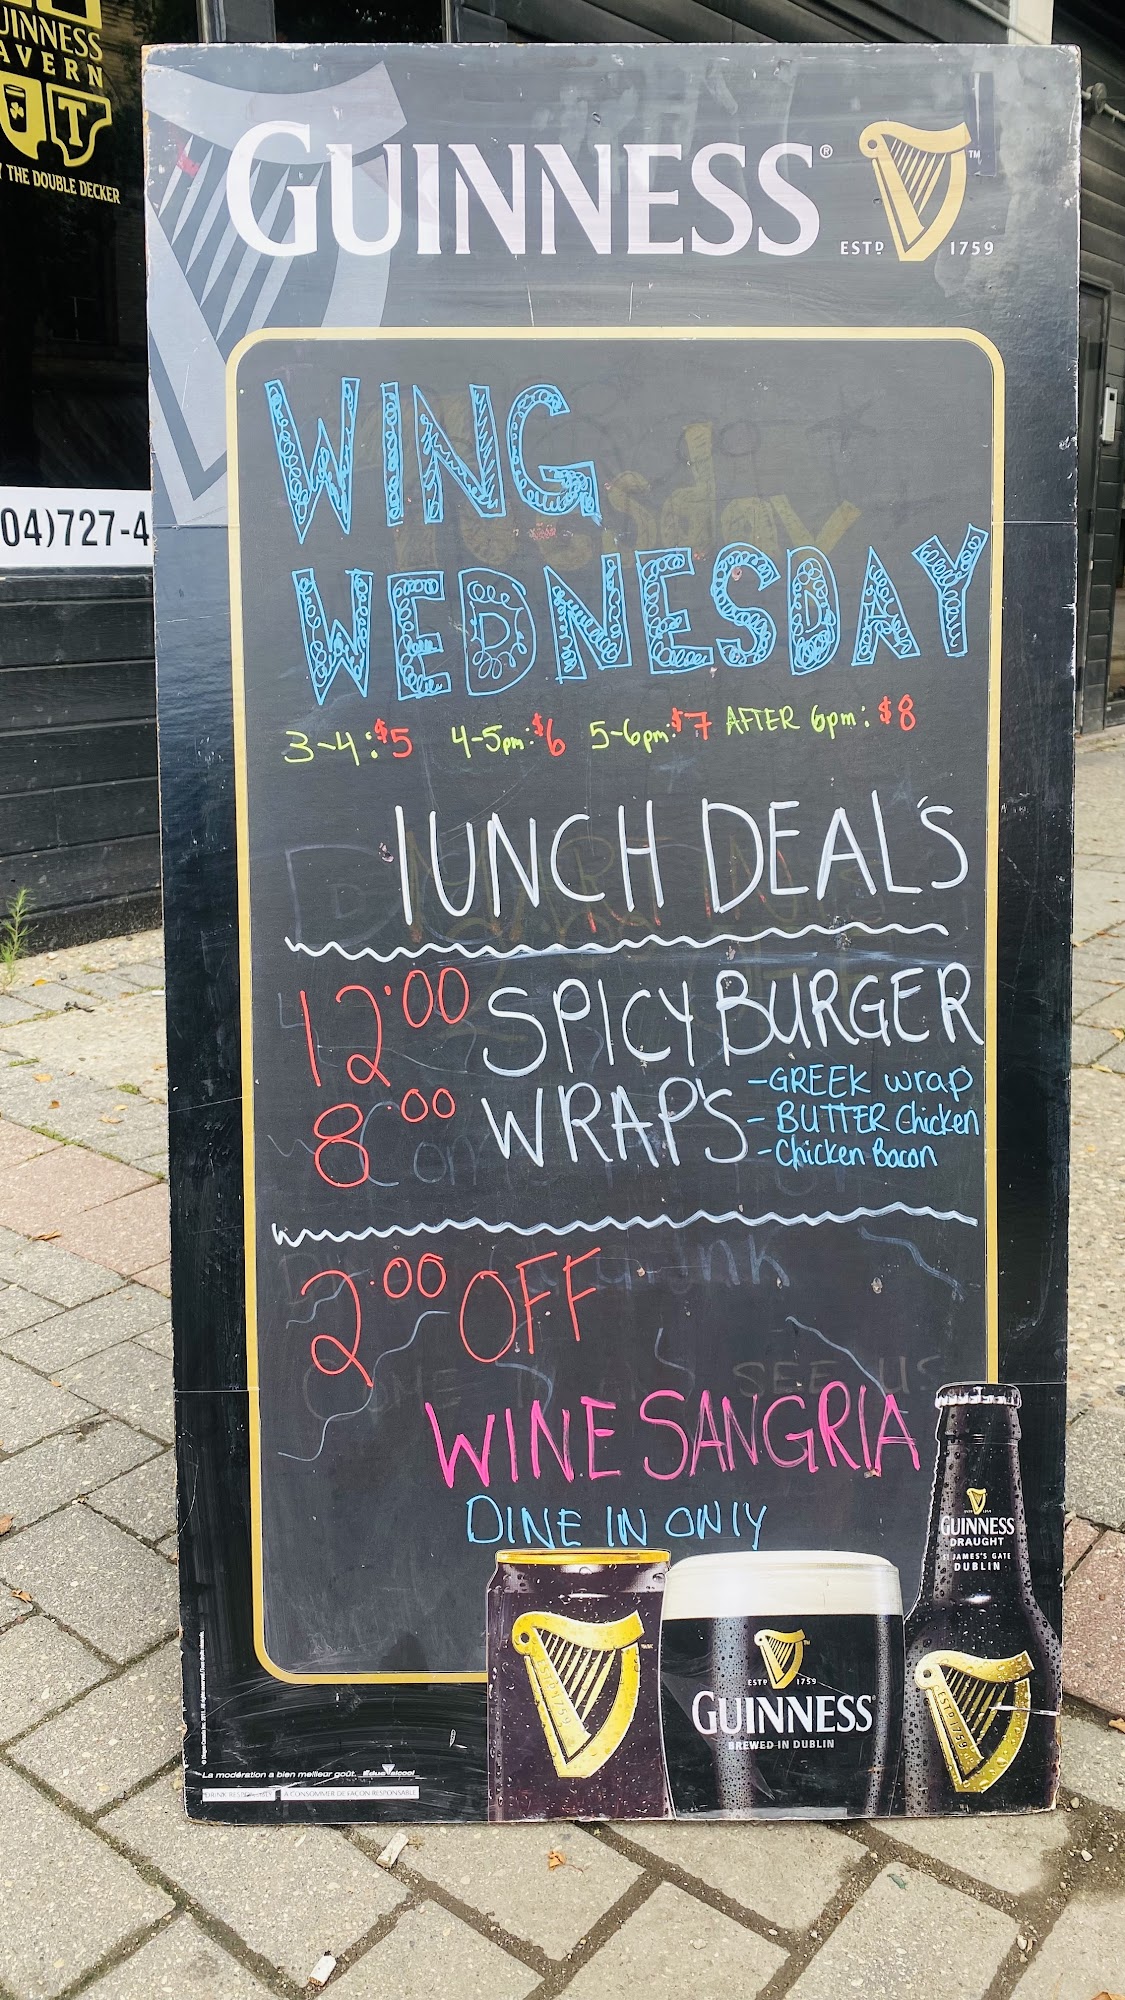 UINNESS
AVERN
T
THE DOUBLE DECKER
04)727-4
GUINNESS®
ESTD 1759
TM
WING
WEDNESDAY
3-4:$5 4-5pm:$6 5-6pm:$7 AFTER 6pm: $8
LUNCH DEAL'S
12.00 SPICY BURGER
8.00 WRAP'S
-GREEK wrap
- BUTTER Chicken
- Chicken Bacon
2.00 OFF
WINE SANGRIA
DINE IN ONLY
GUINNESS
DRAUGHT
ST JAMES'S GATE
DUBLIN
ESTD 1759
ESTD 1759
GUINNESS®
BREWED IN DUBLIN
ESTD 1759
La modération a bien meilleur goût. Éduc'alcool
DRINK RESPONSIBLY
À CONSOMMER DE FAÇON RESPONSABLE